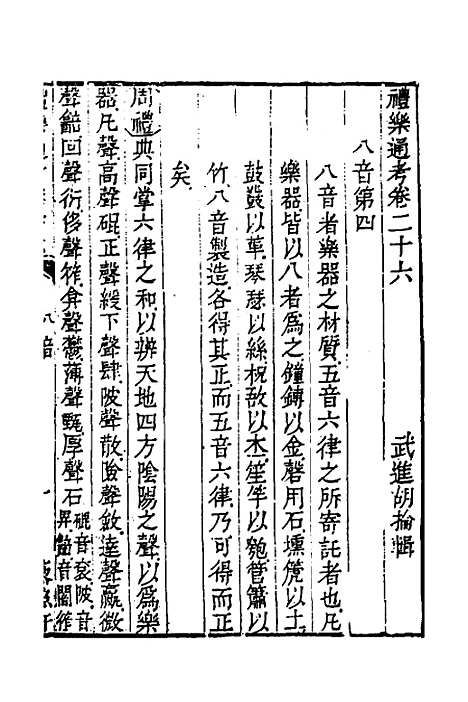 禮樂通考卷二十六
武進胡掄輯
八音第四
八音者樂器之材質五音六律之所寄託者也凡
樂器皆以八者爲之鐘鏄以金磬用石壎篪以土
鼓鼗以革琴瑟以絲柷敔以木笙竽以匏管簫以
竹八音製造各得其正而五音六律乃可得而正
矣
周禮典同掌六律之和以辨天地四方陰陽之聲以爲樂
器凡聲高聲硍正聲緩下聲肆陂聲散險聲斂達聲贏微
聲韽回聲衍侈聲筰弇聲鬱薄聲甄厚聲石
硍音衮陂音
八音
一